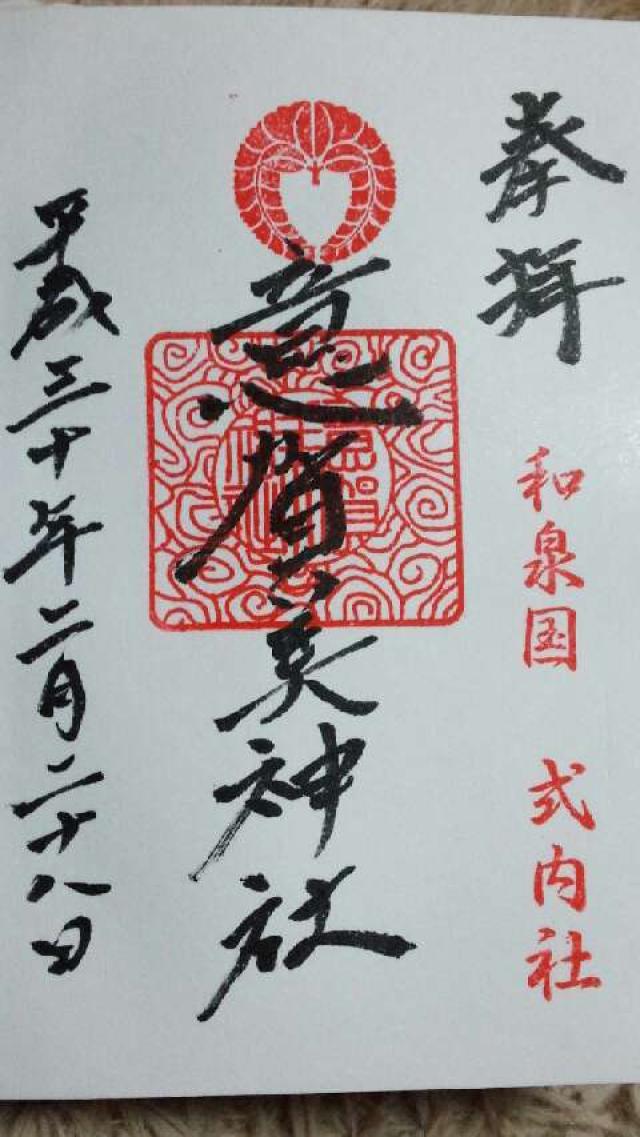 奉拝
和泉国 式内社
意賀美神社
平成三十年二月二十八日